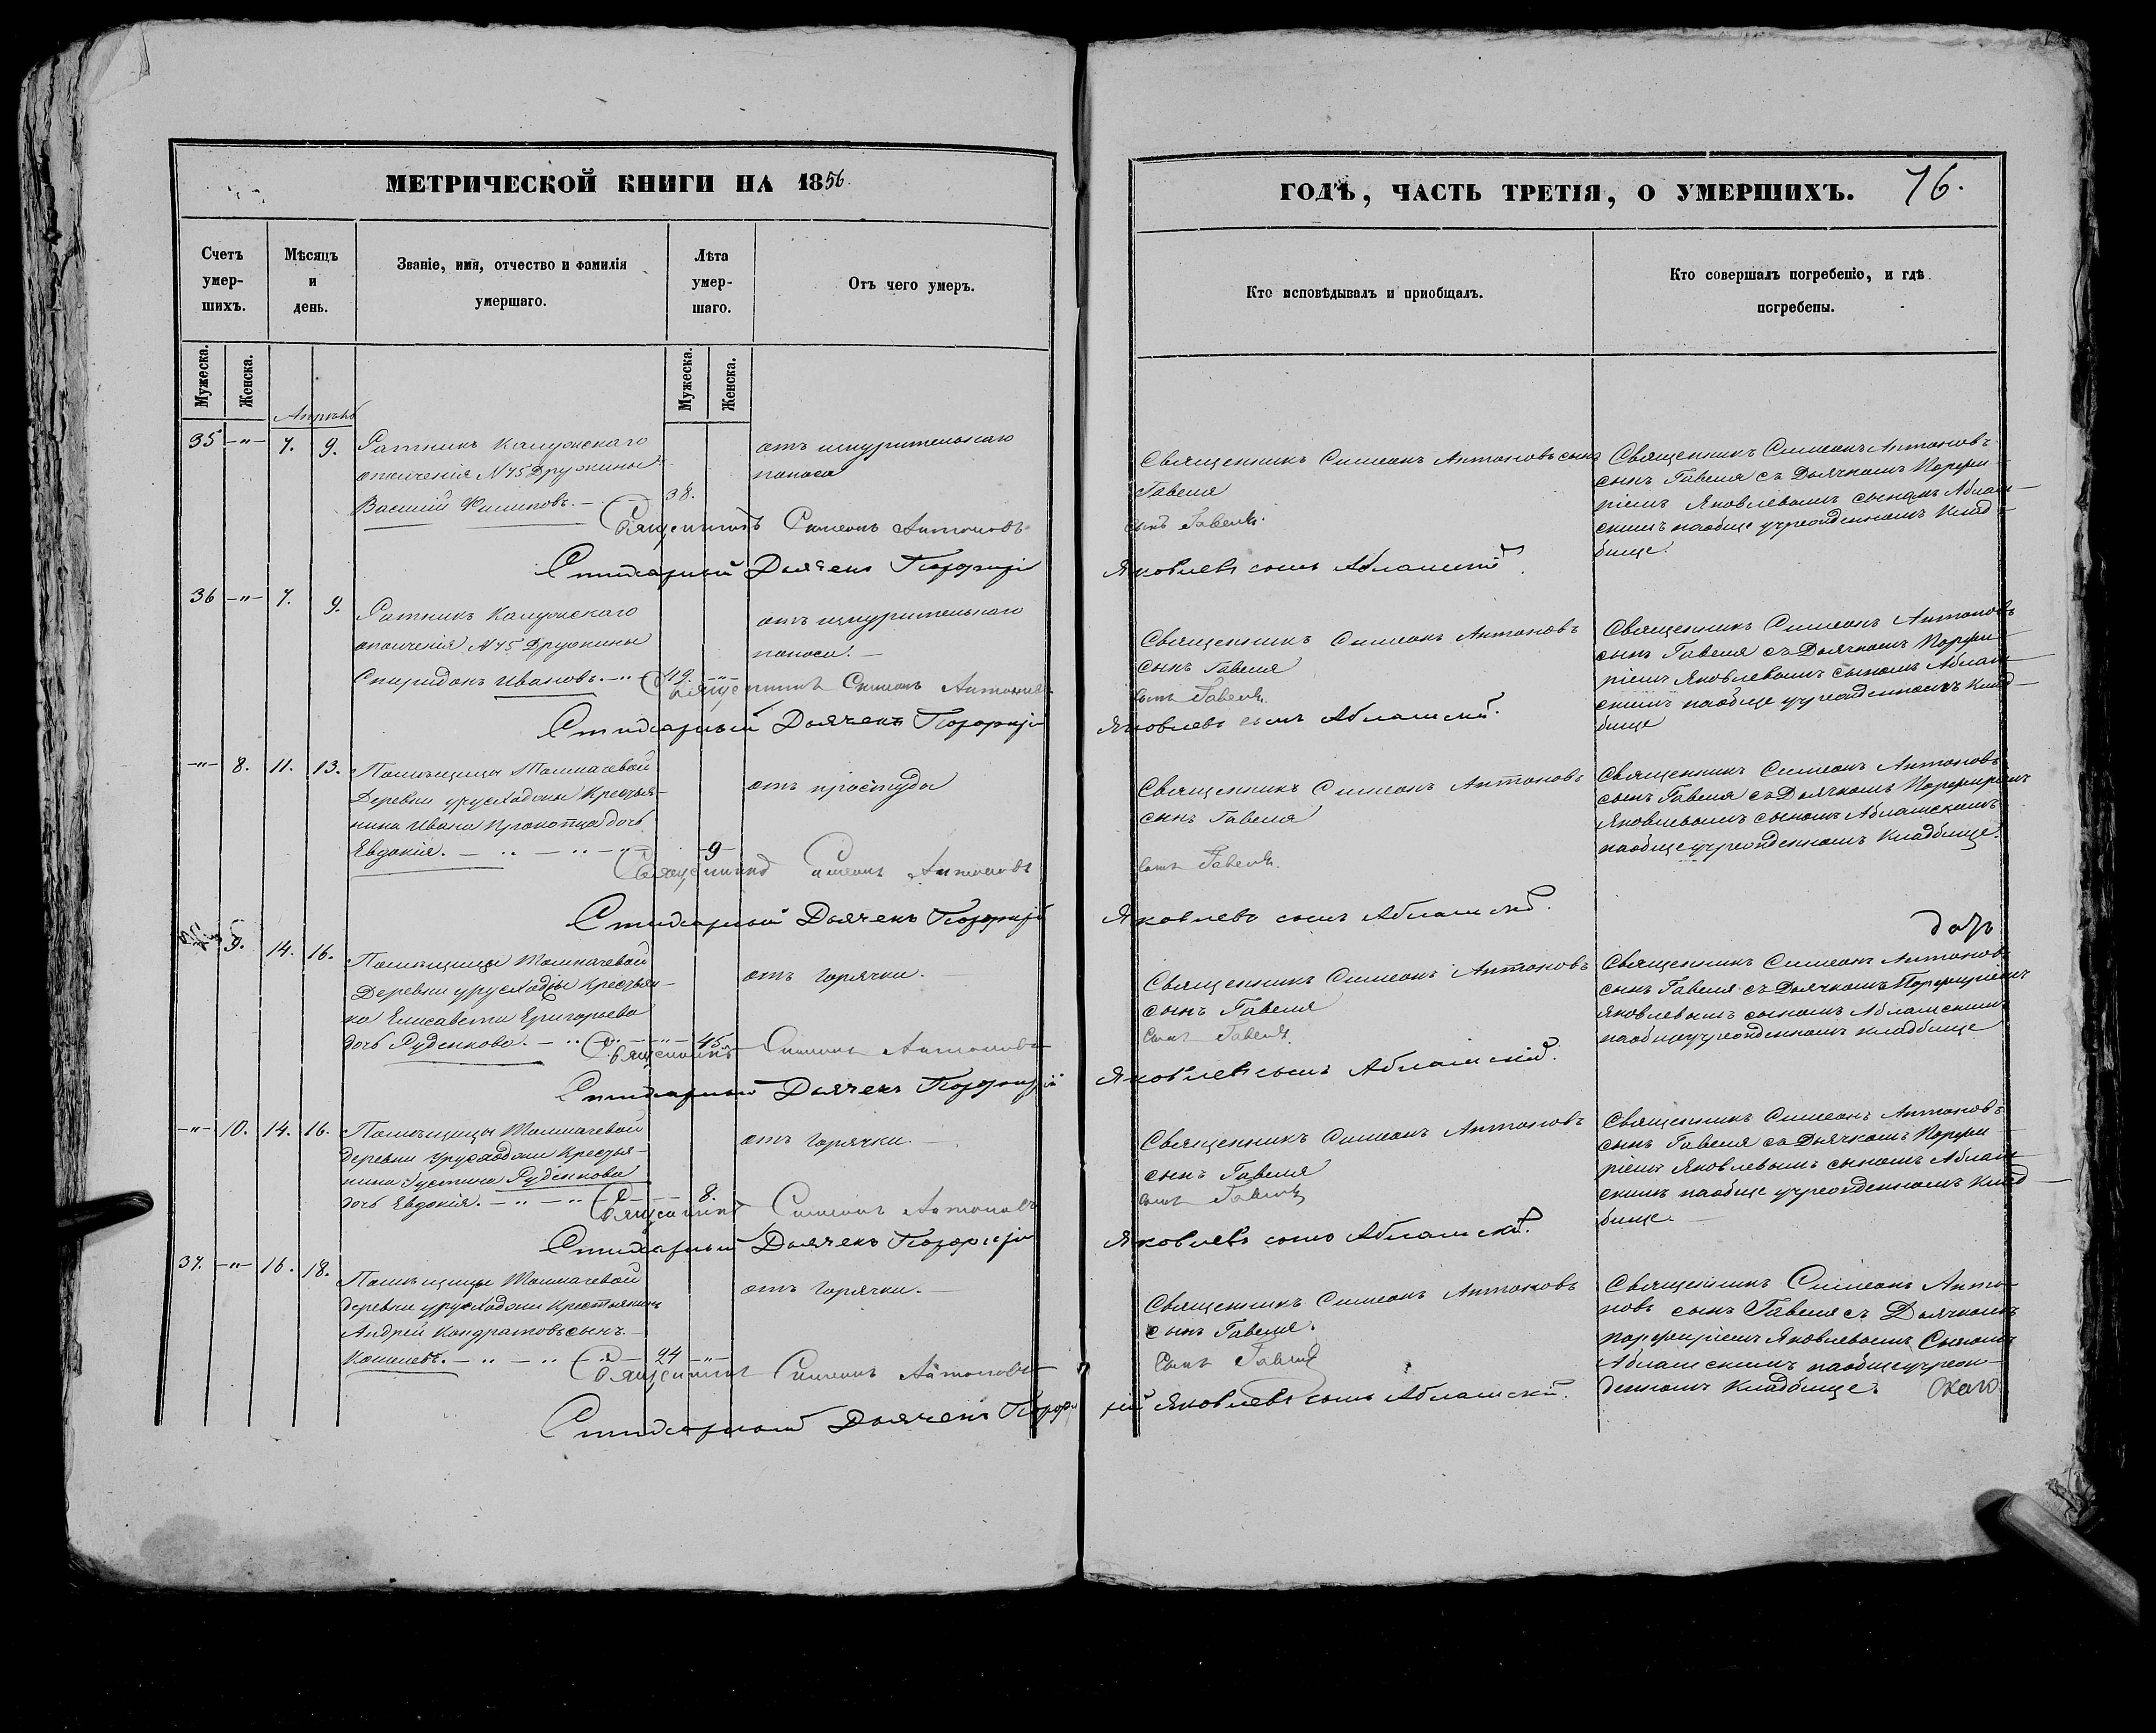 МЕТРИЧЕСКОЙ КНИГИ НА 1856
Счетъ умер-шихъ.
Мѣсяцъ и день.
Званіе, имя, отчество и фамилія умершаго.
Лѣта умер-шаго.
Отъ чего умеръ.
Мужеска.
Женска.
Мужеска.
Женска.
Апрѣль
35 -"- 7. 9. Ратникъ Калужскаго
ополченія №45 Дружины
Василій Филиповъ. 38.
отъ изнурительнаго
поноса
Священникъ Симеонъ Антоновъ
Стихарный Дьячекъ Порфирій
36 -"- 7. 9. Ратникъ Калужскаго
ополченія №45 Дружины
Спиридонъ Ивановъ. -"-
отъ изнурительнаго
поноса.
Священникъ Симеонъ Антоновъ
Стихарный Дьячекъ Порфирій
-"- 8. 11. 13. Помѣщицы Толмачевой
Деревни Крестья-
нина Ивана дочь
Евдокія. 9
отъ простуды
Священникъ Симеонъ Антоновъ
Стихарный Дьячекъ Порфирій
9. 14. 16. Помѣщицы Толмачевой
Деревни Крестьян-
ка Елисавета Григорьева
дочь Руденкова. 45
отъ горячки.
Священникъ Симеонъ Антоновъ
Стихарный Дьячекъ Порфирій
-"- 10. 14. 16. Помѣщицы Толмачевой
деревни Крестья-
нина Густина Руденкова
дочь Евдокія. 8.
отъ горячки.
Священникъ Симеонъ Антоновъ
Стихарный Дьячекъ Порфирій
37. -"- 16. 18. Помѣщицы Толмачевой
деревни Крестьянинъ
Андрей Кондратовъ сынъ
Кошелевъ. 24 -"-
отъ горячки.
Священникъ Симеонъ Антоновъ
Стихарный Дьячекъ Порфи
ГОДЪ, ЧАСТЬ ТРЕТІЯ, О УМЕРШИХЪ. 76.
Кто исповѣдывалъ и пріобщалъ.
Кто совершалъ погребеніе, и гдѣ погребены.
Священникъ Симеонъ Антоновъ сынъ
Гавеля
сынъ Гавеля.
Яковлевъ сынъ Абламскій.
Священникъ Симеонъ Антоновъ
сынъ Гавеля съ Дьячкомъ Порфи-
ріемъ Яковлевымъ сыномъ Аблам-
скимъ наобще учрежденномъ Клад-
бище.
Священникъ Симеонъ Антоновъ
сынъ Гавеля
сынъ Гавеля.
Яковлевъ сынъ Абламскій.
Священникъ Симеонъ Антоновъ
сынъ Гавеля съ Дьячкомъ Порфи-
ріемъ Яковлевымъ сыномъ Аблам-
скимъ наобще учрежденномъ Клад-
бище
Священникъ Симеонъ Антоновъ
сынъ Гавеля
сынъ Гавеля.
Яковлевъ сынъ Абламскій.
Священникъ Симеонъ Антоновъ
сынъ Гавеля съ Дьячкомъ Порфиріемъ
Яковлевымъ сыномъ Абламскимъ
наобще учрежденномъ Кладбище.
Священникъ Симеонъ Антоновъ
сынъ Гавеля
Сынъ Гавеля.
Яковлевъ сынъ Абламскій.
Священникъ Симеонъ Антоновъ
сынъ Гавеля съ Дьячкомъ Порфиріемъ
Яковлевымъ сыномъ Абламскимъ
наобще учрежденномъ кладбище
Священникъ Симеонъ Антоновъ
сынъ Гавеля
сынъ Гавеля
Яковлевъ сынъ Абламскій.
Священникъ Симеонъ Антоновъ
сынъ Гавеля съ Дьячкомъ Порфи-
ріемъ Яковлевымъ сыномъ Аблам-
скимъ наобще учрежденномъ Клад-
бище.
Священникъ Симеонъ Антоновъ
сынъ Гавеля.
Сынъ Гавеля
рій Яковлевъ сынъ Абламскій.
Священникъ Симеонъ Анто-
новъ сынъ Гавеля съ Дьячкомъ
Порфиріемъ Яковлевымъ Сыномъ
Абламскимъ наобще учреж-
денномъ Кладбище.